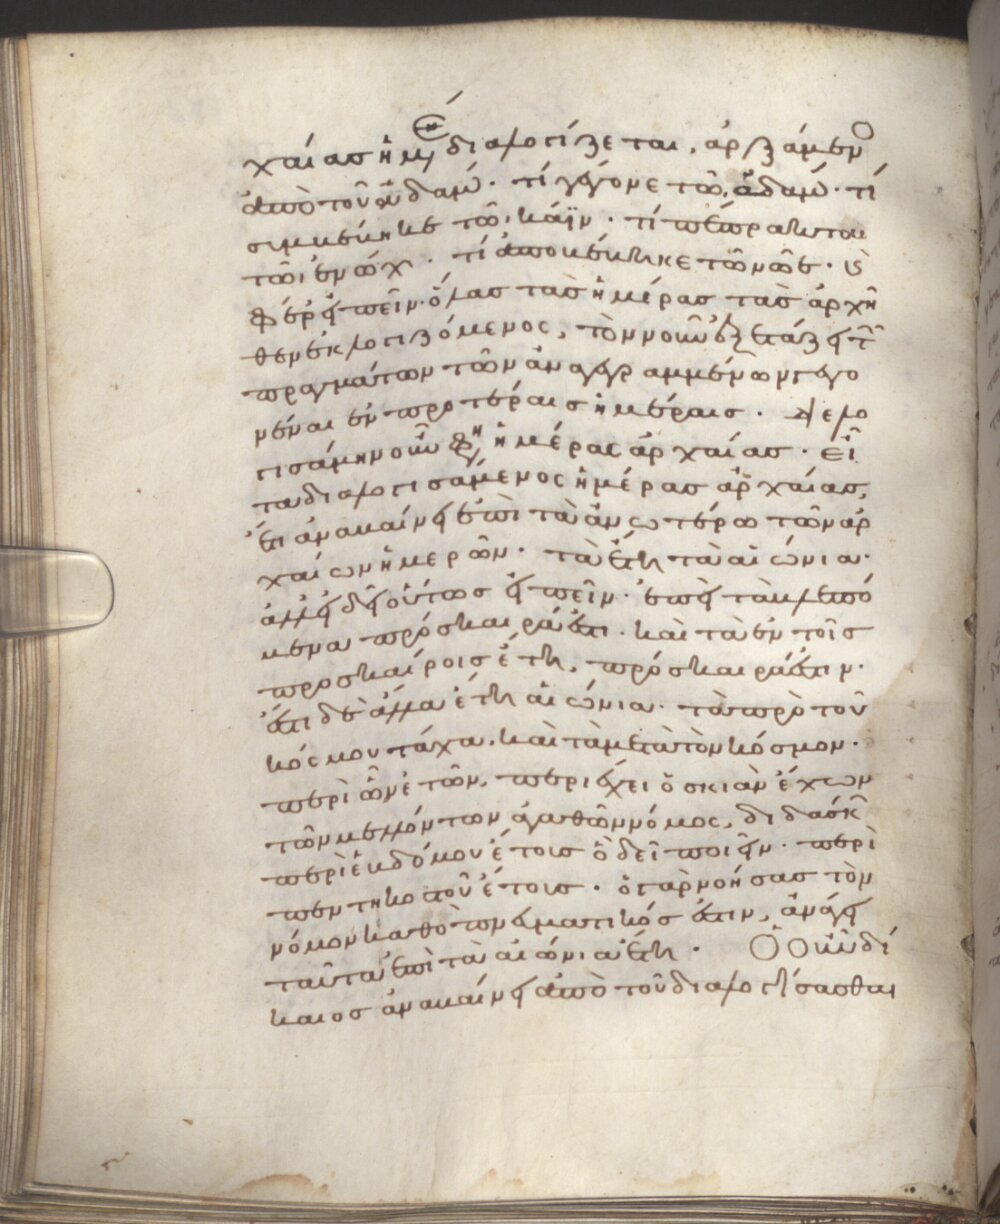 χαίας ἡμέρας διαλογίζεται, ἀρξάμενο
ἀπὸ τοῦ ἀδάμ· τί γέγονε τῶ ἀδάμ· τί
συμβέβηκε τῶ κάϊν· τί πέπρακται
τῶι ἐνώχ· τί ἀποβέβηκε τῶ νῶε· ὡς
φέρ' εἰπεῖν ὅλας τὰς ἡμέρας τὰς ἀρχῆ
θεν ἐκλογιζόμενος, τὸν νοῦν ἐξετάζει τῶν
πραγμάτων τῶν ἀναγεγραμμένων γεγο
νέναι ἐν προτέραις ἡμέραις· διελο
γισάμην οὖν φησὶν ἡμέρας ἀρχαίας· εἶ
τα διαλογισάμενος ἡμέρας ἀρχαίας,
ἔτι ἀναβαίνει ἐπὶ τὰ ἀνωτέρω τῶν ἀρ
χαίων ἡμερῶν· τὰ ἔτη τὰ αἰώνια·
ἀλλ' εἰ δεῖ οὕτως εἰπεῖν· ἐπεὶ τὰ βλεπό
μενα πρόσκαιρά ἐστι· καὶ τὰ ἐν τοῖς
προσκαίροις ἔτη, πρόσκαιρά ἐστιν·
ἔστι δὲ ἄλλα ἔτη αἰώνια· τὰ πρὸ τοῦ
κόσμου τάχα, καὶ τὰ μετὰ τὸν κόσμον·
περὶ ὧν ἐτῶν, περιέχει ὁ σκιὰν ἔχων
τῶν μελλόντων ἀγαθῶν νόμος, διδάσκων
περὶ ἑβδόμου ἔτους ὃ δεῖ ποιεῖν· περὶ
πεντηκοστοῦ ἔτους· ὁ γὰρ νοήσας τὸν
νόμον καθὸ πνευματικός ἐστιν, ἀνάγει
ταῦτα ἐπὶ τὰ αἰώνια ἔτη· Ὁ οὖν δί
καιος ἀναβαίνει ἀπὸ τοῦ διαλογίσασθαι